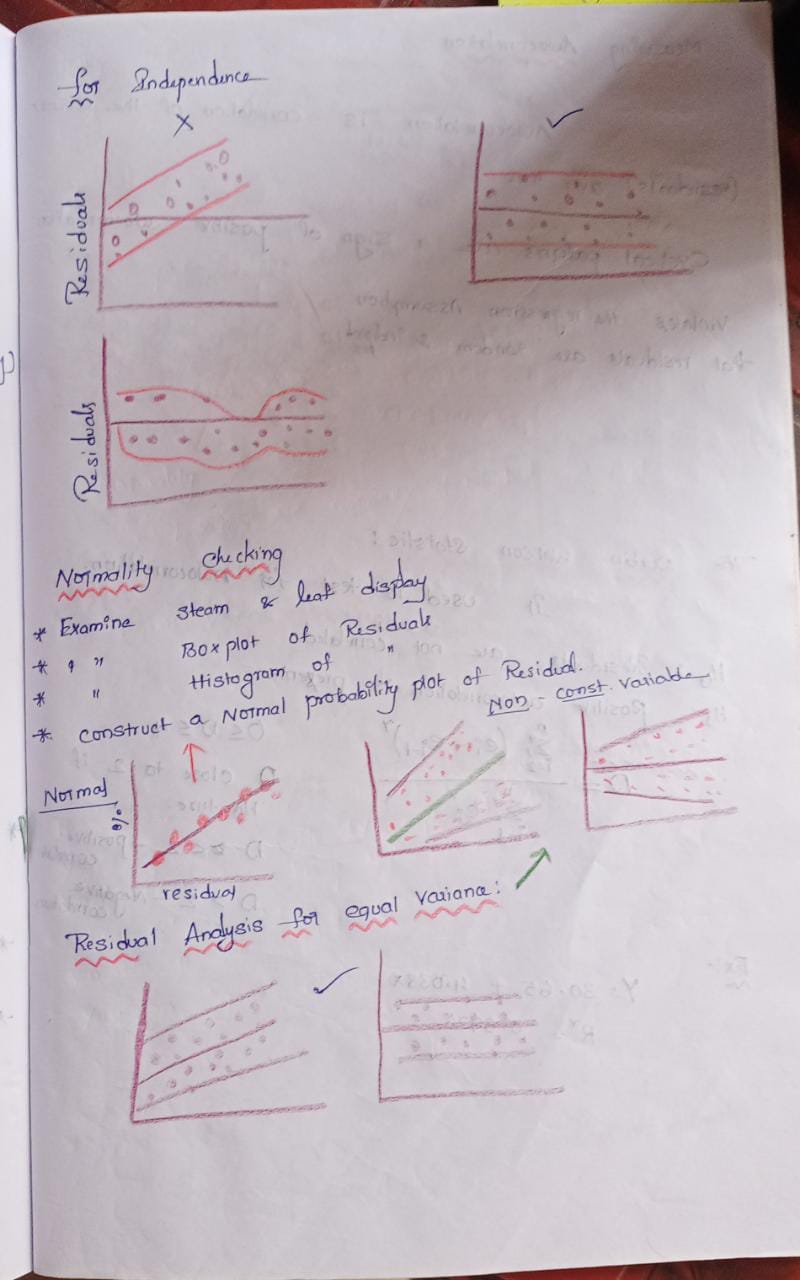 for Independence
×
✓
Residuals
Residuals
Normality checking
* Examine steam & leaf display
* " " Box plot of Residuals
* " Histogram of "
* construct a Normal probability plot of Residual.
Non-const. variable
Normal
%
residual
Residual Analysis for equal variance:
✓